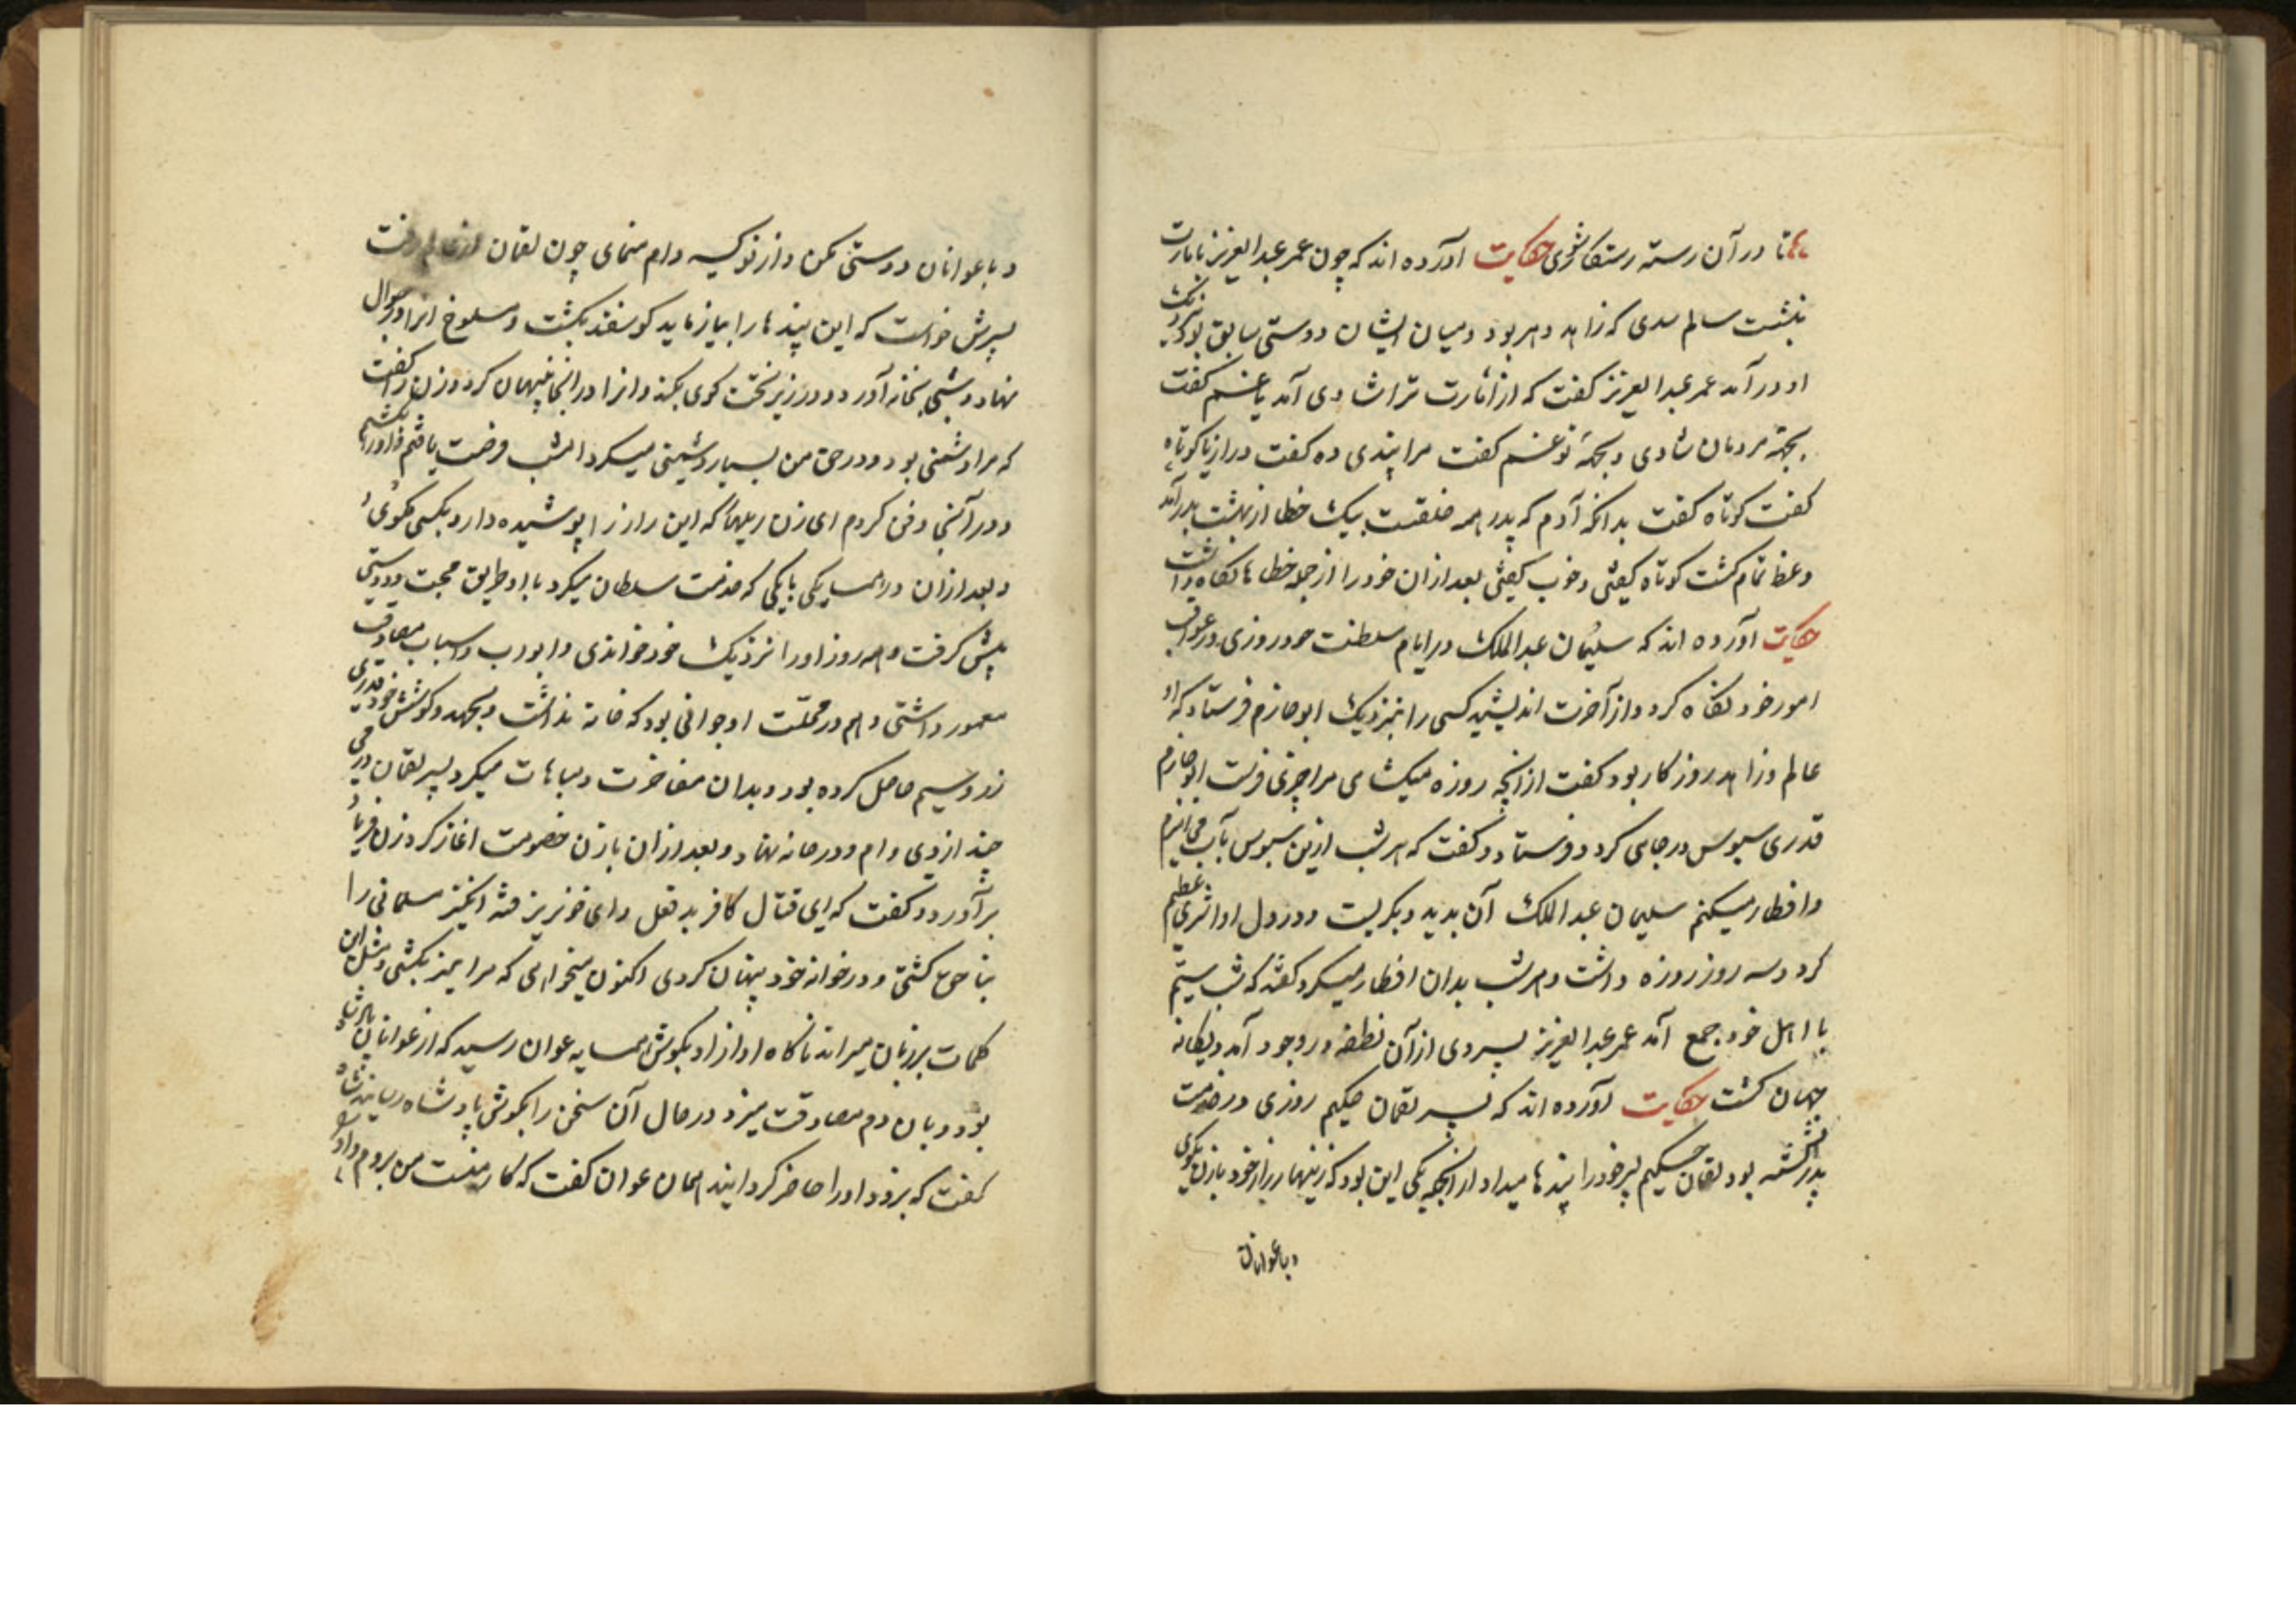 تا در آن رسته رستکار شوی حکایت آورده اند که چون عمر عبدالعزیز بامارت
بنشست سالم سدی که زاهد دهر بود و میان ایشان دوستی سابق بود نزدیک
او در آمد عمر عبدالعزیز کفت که از امارت تراشادی آمد یا غم کفت
بجهة مردمان شادی و بجهة تو غم کفت مرا پندی ده کفت دراز یا کوتاه
کفت کوتاه کفت بدانکه آدم که پدر همه خلقست بیک خطا از بهشت بدر آمد
وعظ تمام کشت کوتاه کفتی و خوب کفتی بعد ازان خود را از جمله خطاها نکاه داشت
حکایت آورده اند که سلیمان عبدالملک در ایام سلطنت خود روزی در عواقب
امور خود نکاه کرد و از آخرت اندیشید کسی را بنزدیک ابو حازم فرستاد که او
عالم و زاهد روزکار بود کفت ازانچه روزه میکشای مرا چیزی فرست ابو حازم
قدری سبوس در جای کرد و فرستاد و کفت که هر شب ازین سبوس بآب می آمیزم
و افطار میکنم سلیمان عبدالملک آن بدید و بکریست و در دل او اثری عظیم
کرد و سه روز روزه داشت و هر شب بدان افطار میکرد کفتند که شب سیم
با اهل خود جمع آمد عمر عبدالعزیز پسر وی از آن نطفه در وجود آمد و یکانه
جهان کشت حکایت آورده اند که پسر لقمان حکیم روزی در خدمت
پدر نشسته بود لقمان حکیم پسر خود را پندها میداد از انجمله یکی این بود که زینهار راز خود با زن مکوی
و با عوانان
و با عوانان دوستی مکن و از نوکیسه وام منمای چون لقمان از عالم رفت
پسرش خواست که این پندها را بیازماید کوسفند بکشت و مسلوخ انرا در جوال
نهاد و شبی بخانه آورد و در زیر تخت کوی بکند و انرا در انجا پنهان کرد و زن را کفت
که مرا دشمنی بود و در حق من بسیار دشمنی میکرد امشب فرصت یافتم و او را بکشتم
و در آنجا دفن کردم ای زن زینهار که این راز را پوشیده دار و بکسی مکوی
و بعد ازان در همسایکی با یکی که خدمت سلطان میکرد با او طریق محبت و دوستی
پیش کرفت و هر روز او را نزدیک خود خواندی و ابواب و اسباب مصادقت
معمور داشتی و هم در محلت او جوانی بود که خانه نداشت و بجهد و کوشش خود قدری
زر و سیم حاصل کرده بود و بدان مفاخرت و مباهات میکرد پسر لقمان درمی
چند از وی وام و در خانه نهاد و بعد ازان با زن خصومت اغاز کرد زن فریاد
برآورد و کفت که ای قتال کافر بد فعل و ای خونریز فتنه انکیز مسلمانی را
بناحق کشتی و در خوانه خود پنهان کردی اکنون میخواهی که مرا نیز بکشی و مثل این
کلمات بر زبان میراند ناکاه آواز او بکوش همسایه عوان رسید که از عوانان پادشاه
بود و بان دم مصادقت میزد در حال آن سخن را بکوش پادشاه رسانید پادشاه
کفت که بروید او را حاضر کردانید همان عوان کفت که کار منست من بروم و او را